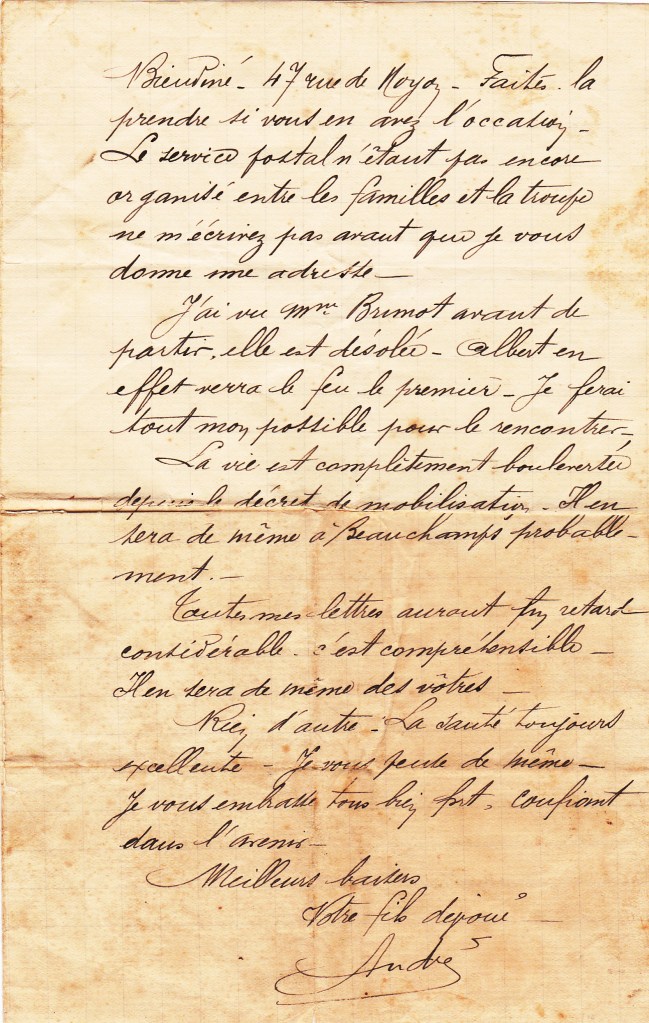 Bieudiné - 47 rue de Noyon - Faites la
prendre si vous en avez l'occasion -
Le service postal n'étant pas encore
organisé entre les familles et la troupe
ne m'écrivez pas avant que je vous
donne une adresse -
J'ai vu Mme Brunot avant de
partir, elle est désolée - Albert en
effet verra le feu le premier - Je ferai
tout mon possible pour le rencontrer -
La vie est complètement bouleversée
depuis le décret de mobilisation - Il en
sera de même à Beauchamps probable-
ment. -
Toutes mes lettres auront un retard
considérable - c'est compréhensible -
Il en sera de même des vôtres -
Rien d'autre - La santé toujours
excellente - Je vous pense de même -
Je vous embrasse tous bien fort, confiant
dans l'avenir -
Meilleurs baisers
Votre fils dévoué -
André